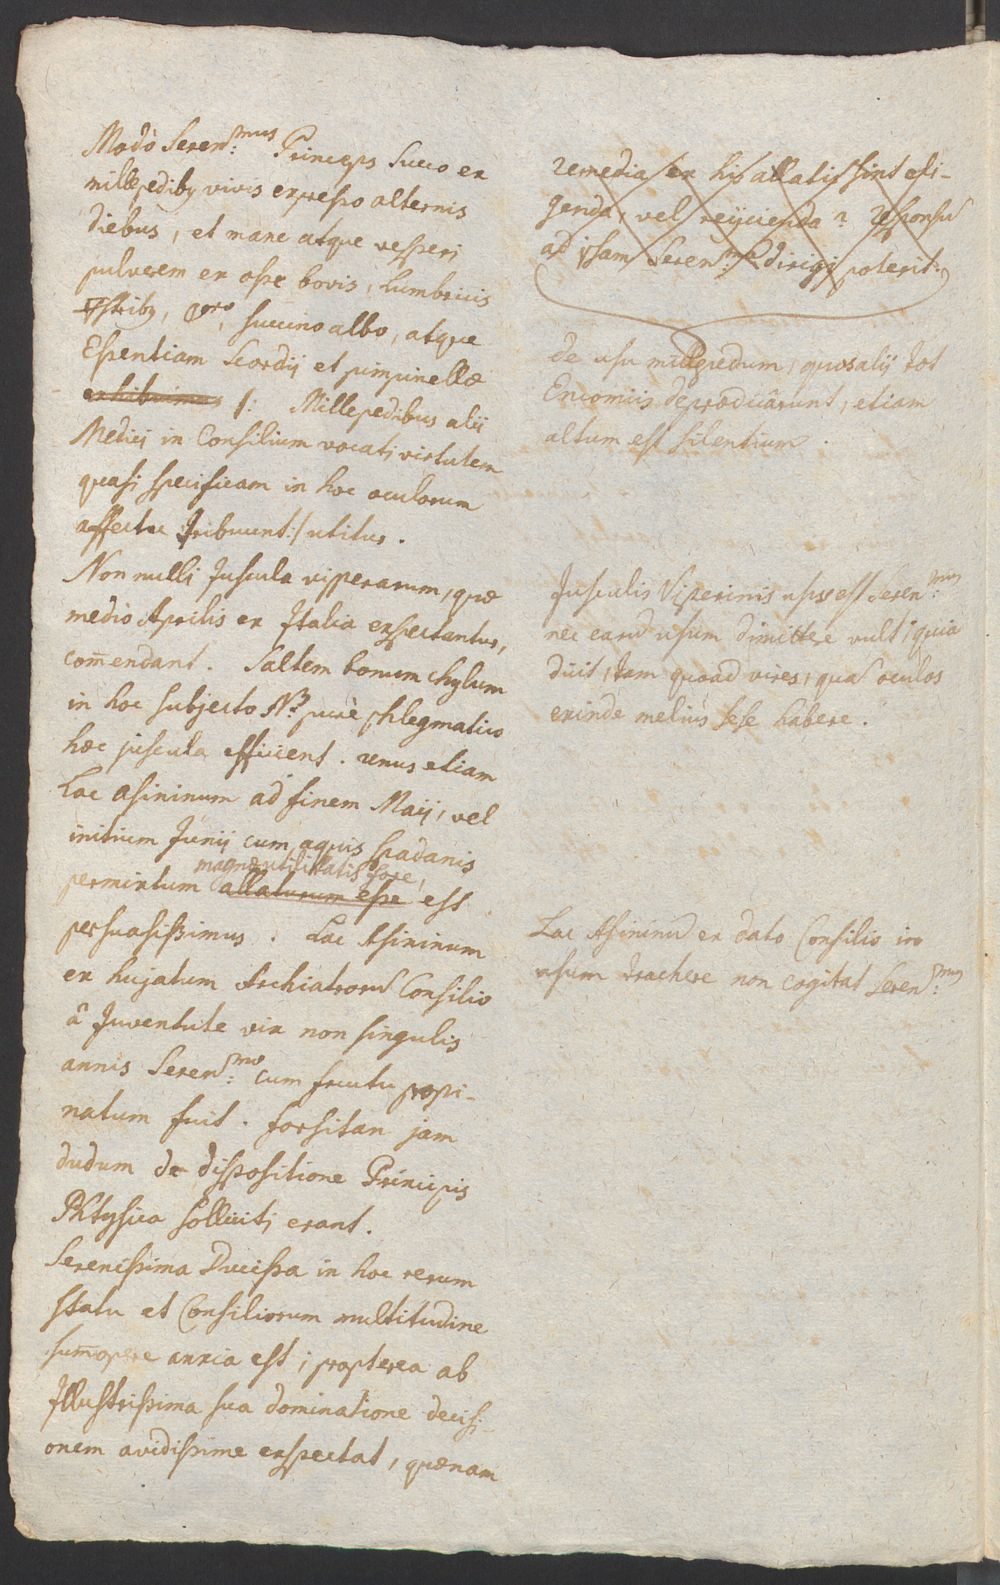 Modò Seren:mus Princeps succo ex
millepedibq vivis expresso alternis
diebus, et mane atque vesperi
pulverem ex osse bovis, lumbricis
🜃stribq, ppro, succino albo, atque
Essentiam Scordij et pimpinellæ
exhibuimus /: Millepedibus alij
Medici in Consilium vocati virtutem
quasi specificam in hoc oculorum
affectu tribuunt :/ utitur.
Non nulli Juscula viperarum, quæ
medio Aprilis ex Italia expectantur,
com̄endant. Saltem bonum chylum
in hoc subjecto purè phlegmatico
hæc juscula efficient. unus etiam
Lac asininum ad finem Maij, vel
initium Junij cum aquis spadanis
magnæ utilitatis fore,
permixtum allaturum esse est
persuasissimus. Lac Asininum
ex hujatum Archiatrorū Consilio
â Juventute vix non singulis
annis Seren:mo cum fructu propi-
natum fuit. forsitan jam
dudum de dispositione Principis
Phtysica solliciti erant.
Serenissima Ducissa in hoc rerum
statu et Consiliorum multitudine
sum̄opere anxia est; propterea ab
Illustrissima sua dominatione decisi-
onem avidissime expectat, quænam
remedia ex his allatis sint eli-
genda, vel reijcienda? responsū
ad ipsam Seren:mā dirigi poterit.
de usu millepedum, quos alij tot
Encomijs deprædicârunt, etiam
altum est silentium.
Jusculis Viperinis usus est Seren:mus
nec earū usum dimittere vult, quia
dicit, tam quoad vires, quā oculos
exinde meliùs sese habere.
Lac Asininū ex dato Consilio in
usum trachere non cogitat Seren:mus